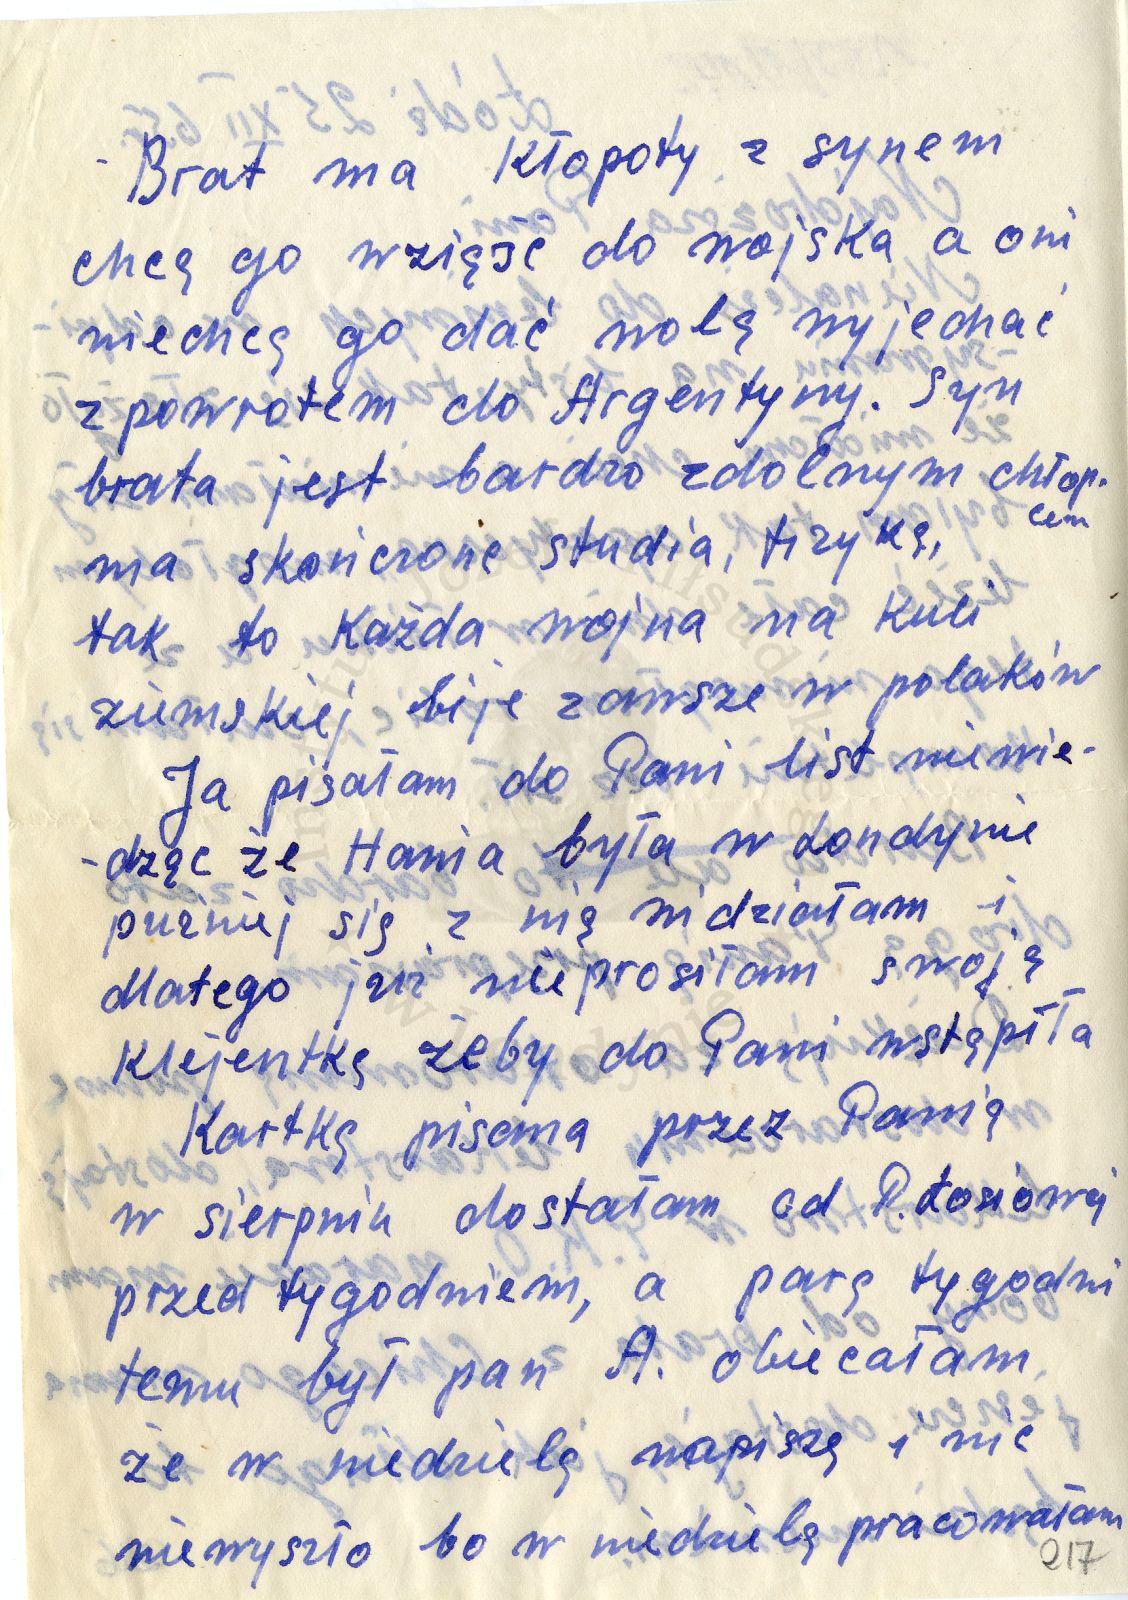 - Brat ma kłopoty z synem
chcą go wziąść do wojska a oni
niechcą go dać wolą wyjechać
z powrotem do Argentyny. Syn
brata jest bardzo zdolnym chłop-
cem
ma skończone studia, fizykę,
tak to każda wojna na kuli
ziemskiej bije zawsze w polaków
Ja pisałam do Pani list niewie-
-dząc że Hania była w Londynie
puźniej się z nią widziałam i
dlatego już nieprosiłam swoją
klejentkę żeby do Pani wstąpiła
Kartkę pisaną przez Panią
w sierpniu dostałam od P. Łosiowej
przed tygodniem, a parę tygodni
temu był pan A. obiecałam
że w niedzielę napiszę i nic
niewyszło bo w niedzielę pracowałam
217